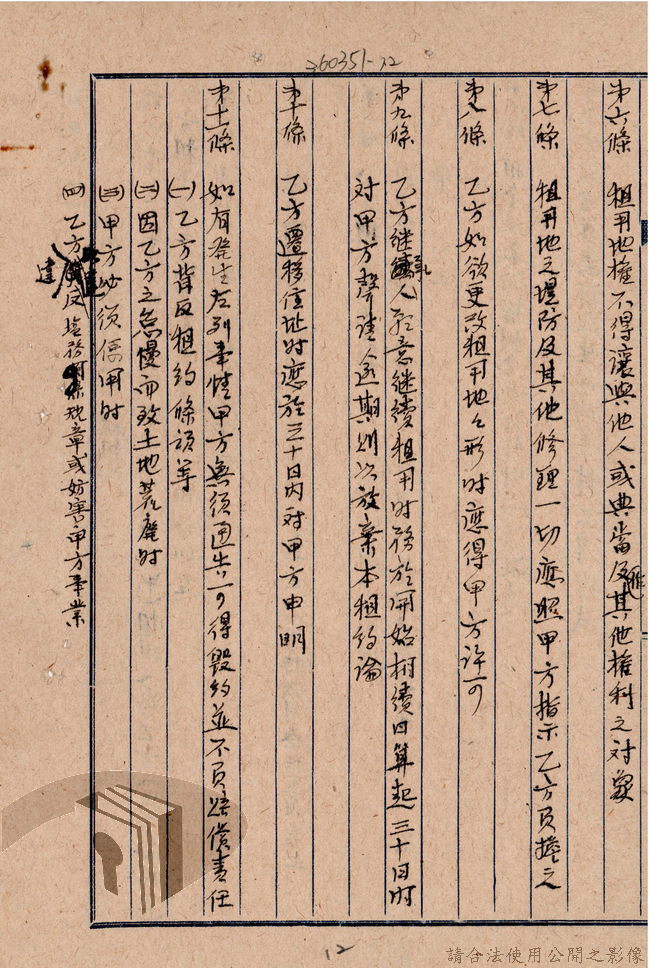 360351-12
第六條 租用地權不得讓與他人或典當及其他權利之對象
第七條 租用地之堤防及其他修理一切應照甲方指示乙方負擔之
第八條 乙方如欲更改租用地之形時應得甲方許可
第九條 乙方繼承人願意繼續租用時務於開始相續日算起三十日內
對甲方聲請逾期則以放棄本租約論
第十條 乙方遷移住址時應於三十日內對甲方申明
第十一條 如有發生左列事情甲方無須通告可得毀約並不負賠償責任
㈠乙方背反租約條項等
㈡因乙方之怠慢而致土地荒廢時
㈢甲方必須使用時
㈣乙方違反塩務規章或妨害甲方事業
12
請合法使用公開之影像